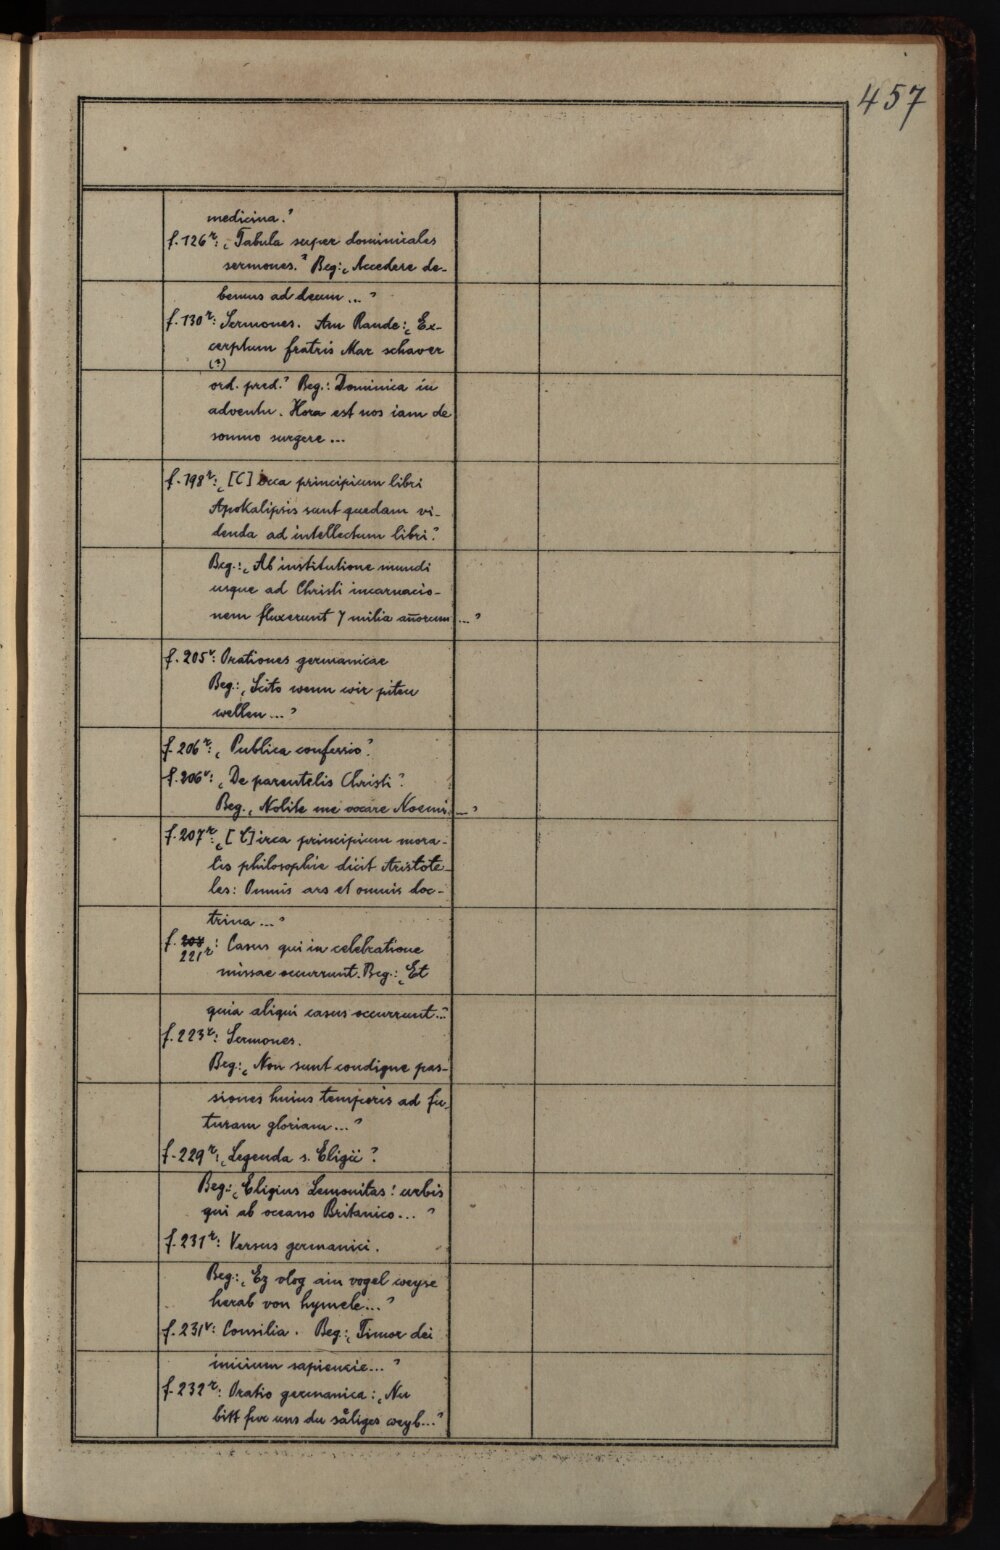 457
medicina."
f. 126r: „Tabula super dominicales
sermones." Beg: „Accedere de-
bemus ad deum..."
f. 130r: Sermones. Am Rande: „Ex-
cerptum fratris Mar schaver
(?)
ord. pred." Beg.: Dominica in
adventu. Hora est nos iam de
somno surgere...
f. 198r: „[C]irca principium libri
Apokalipsis sunt quedam vi-
denda ad intellectum libri."
Beg.: „Ab institutione mundi
usque ad Christi incarnacio-
nem fluxerunt 7 milia añorum..."
f. 205r: Orationes germanicae
Beg: „Scito wenn wir piten
wellen..."
f. 206r: „Publica confessio."
f. 206v: „De parentelis Christi".
Beg. „Nolite me vocare Noemi..."
f. 207r: „[C]irca principium mora-
lis philosophie dicit Aristote-
les: Omnis ars et omnis doc-
trina..."
f. 221r: Casus qui in celebratione
missae occurrunt. Beg.: „Et
quia aliqui casus occurrunt..."
f. 223r: Sermones.
Beg: „Non sunt condigne pas-
siones huius temporis ad fu-
turam gloriam..."
f. 229r: „Legenda s. Eligii".
Beg: „Eligius Lemonitas! urbis
qui ab oceano Britanico..."
f. 231r: Versus germanici.
Beg: „Ez vlog ain vogel weyse
herab von hymele..."
f. 231v: Consilia. Beg: „Timor dei
inicium sapiencie..."
f. 232r: Oratio germanica: „Nu
bitt fur uns du såliges weyb..."